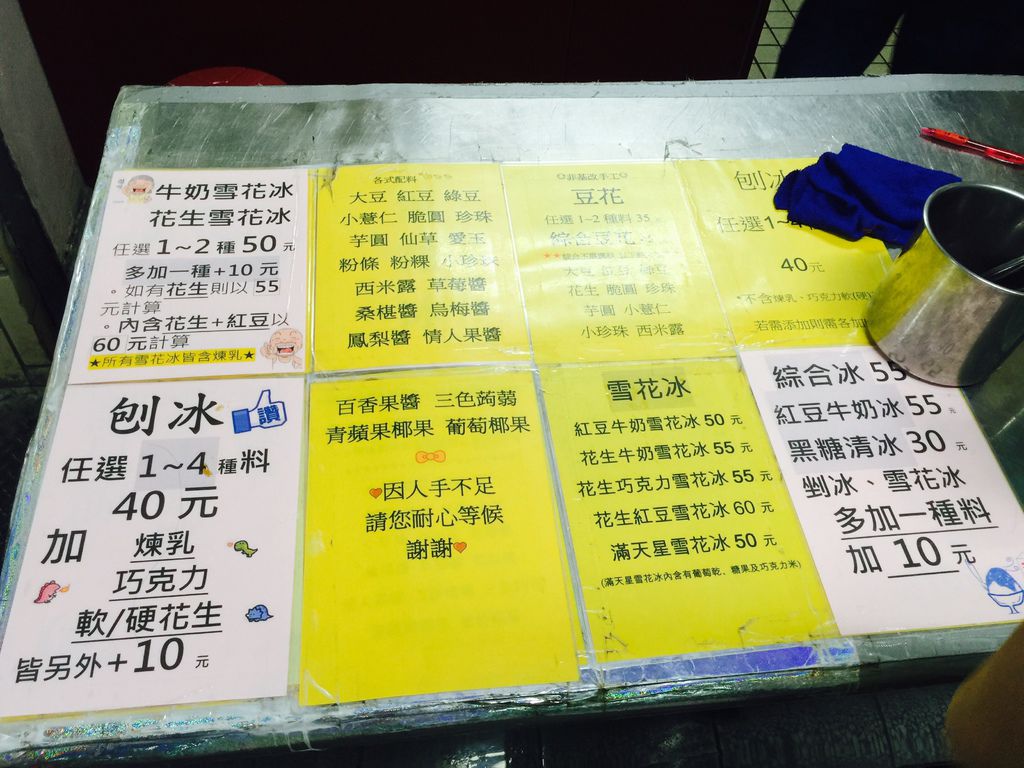 牛奶雪花冰
花生雪花冰
任選1~2種50元
多加一種+10元
。如有花生則以55
元計算
。內含花生+紅豆以
60元計算
★所有雪花冰皆含煉乳★
各式配料
大豆 紅豆 綠豆
小薏仁 脆圓 珍珠
芋圓 仙草 愛玉
粉條 粉粿 小珍珠
西米露 草莓醬
桑椹醬 烏梅醬
鳳梨醬 情人果醬
◎非基改手工◎
豆花
任選1~2種料35元
綜合豆花
大豆 紅豆 綠豆
花生 脆圓 珍珠
芋圓 小薏仁
小珍珠 西米露
刨冰
任選1~4
40元
*不含煉乳、巧克力軟(硬)
若需添加則需各加
刨冰
讚
任選1~4種料
40元
加 煉乳
巧克力
軟/硬花生
皆另外+10元
百香果醬 三色蒟蒻
青蘋果椰果 葡萄椰果
因人手不足
請您耐心等候
謝謝
雪花冰
紅豆牛奶雪花冰50元
花生牛奶雪花冰55元
花生巧克力雪花冰55元
花生紅豆雪花冰60元
滿天星雪花冰50元
(滿天星雪花冰內含有葡萄乾、糖果及巧克力米)
綜合冰55
紅豆牛奶冰55元
黑糖清冰30元
剉冰、雪花冰
多加一種料
加10元